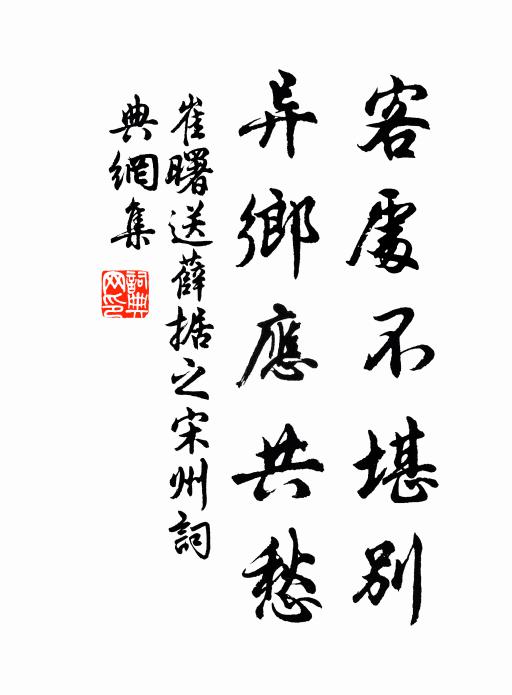 客處不堪別
异鄉應共愁
崔曙送薛据之宋州詞
典網集
詞典網印